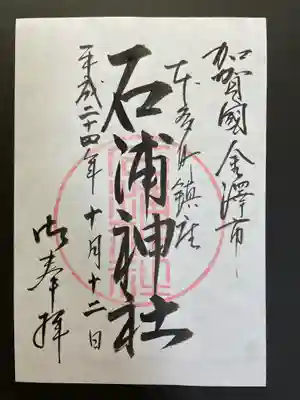 加賀國金澤市
本多町鎮座
石浦神社
平成二十四年十月十二日
御奉拝